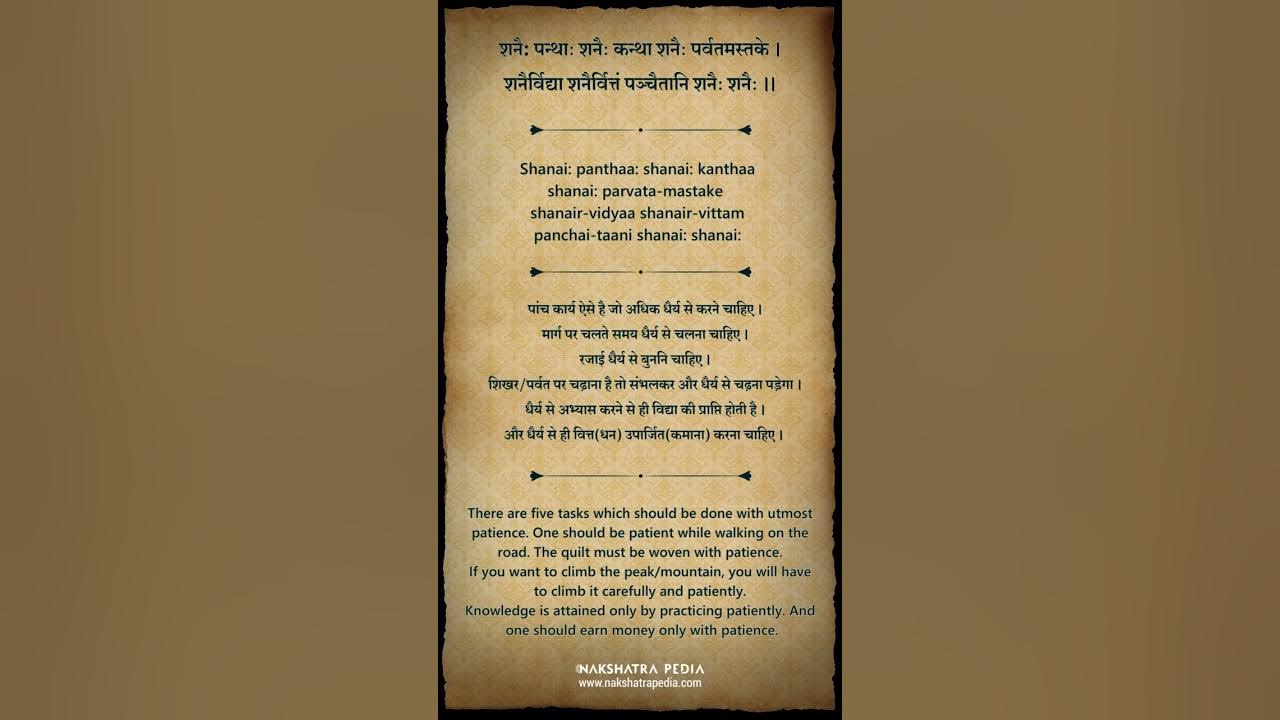 शनैः पन्थाः शनैः कन्था शनैः पर्वतमस्तके ।
शनैर्विद्या शनैर्वित्तं पञ्चैतानि शनैः शनैः ।।
Shanai: panthaa: shanai: kanthaa
shanai: parvata-mastake
shanair-vidyaa shanair-vittam
panchai-taani shanai: shanai:
पांच कार्य ऐसे है जो अधिक धैर्य से करने चाहिए ।
मार्ग पर चलते समय धैर्य से चलना चाहिए ।
रजाई धैर्य से बुननि चाहिए ।
शिखर/पर्वत पर चढ़ाना है तो संभलकर और धैर्य से चढ़ना पड़ेगा ।
धैर्य से अभ्यास करने से ही विद्या की प्राप्ति होती है ।
और धैर्य से ही वित्त(धन) उपार्जित(कमाना) करना चाहिए ।
There are five tasks which should be done with utmost
patience. One should be patient while walking on the
road. The quilt must be woven with patience.
If you want to climb the peak/mountain, you will have
to climb it carefully and patiently.
Knowledge is attained only by practicing patiently. And
one should earn money only with patience.
NAKSHATRA PEDIA
www.nakshatrapedia.com